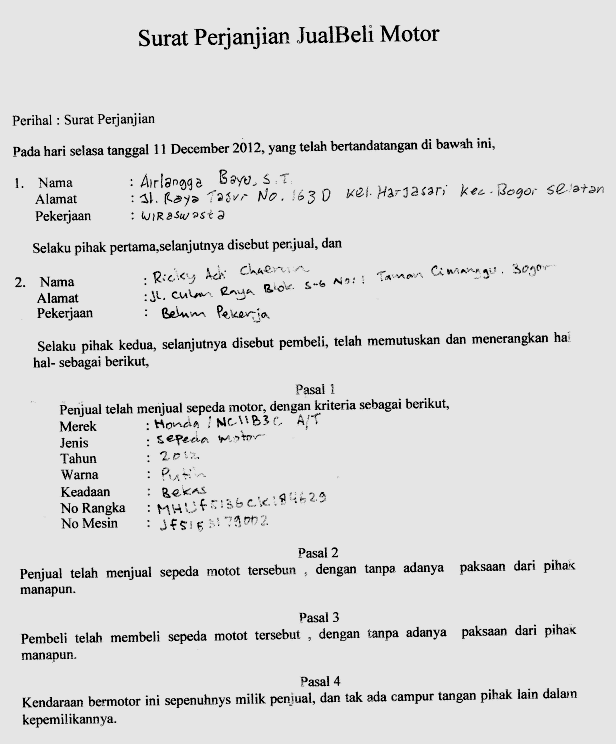 Surat Perjanjian JualBeli Motor
Perihal : Surat Perjanjian
Pada hari selasa tanggal 11 December 2012, yang telah bertandatangan di bawah ini,
1. Nama : Airlangga Bayu, S.T.
Alamat : Jl. Raya Tajur No. 163 D Kel. Harjasari Kec. Bogor Selatan
Pekerjaan : WIRaswasta
Selaku pihak pertama,selanjutnya disebut penjual, dan
2. Nama : Ricky Adi
Alamat : Jl. Raya Blok S-6 No: 1 Taman Cimanggu. Bogor
Pekerjaan : Belum Pekerja
Selaku pihak kedua, selanjutnya disebut pembeli, telah memutuskan dan menerangkan hal
hal- sebagai berikut,
Pasal 1
Penjual telah menjual sepeda motor, dengan kriteria sebagai berikut,
Merek : Honda / NC11B3C A/T
Jenis : Sepeda motor
Tahun : 2012
Warna : Putih
Keadaan : Bekas
No Rangka :
No Mesin :
Pasal 2
Penjual telah menjual sepeda motot tersebun , dengan tanpa adanya paksaan dari pihak
manapun.
Pasal 3
Pembeli telah membeli sepeda motot tersebut , dengan tanpa adanya paksaan dari pihak
manapun.
Pasal 4
Kendaraan bermotor ini sepenuhnys milik penjual, dan tak ada campur tangan pihak lain dalam
kepemilikannya.